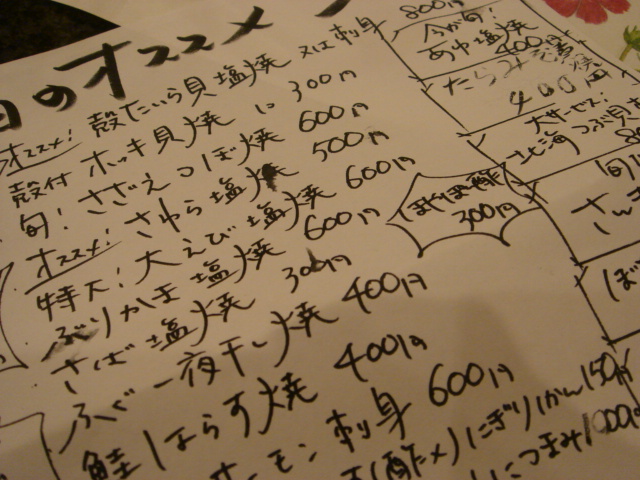 日のオススメ
オススメ! 殻たいら貝塩焼 又は刺身 800円
殻付 ホッキ貝焼 1コ 300円
旬! さざえつぼ焼 600円
オススメ! さわら塩焼 500円
特大! 大えび塩焼 600円
ぶりかま塩焼 600円
さば塩焼 300円
ふぐ一夜干し焼 400円
鮭はらす焼 400円
サーモン刺身 600円
(酢〆)にぎり1かん150円
につまみ1000円
今が旬!
あゆ塩焼
400円
たらみ
400円
大サービス!
北海つぶ貝
ほやほや酢
300円
旬
さん
ぼ